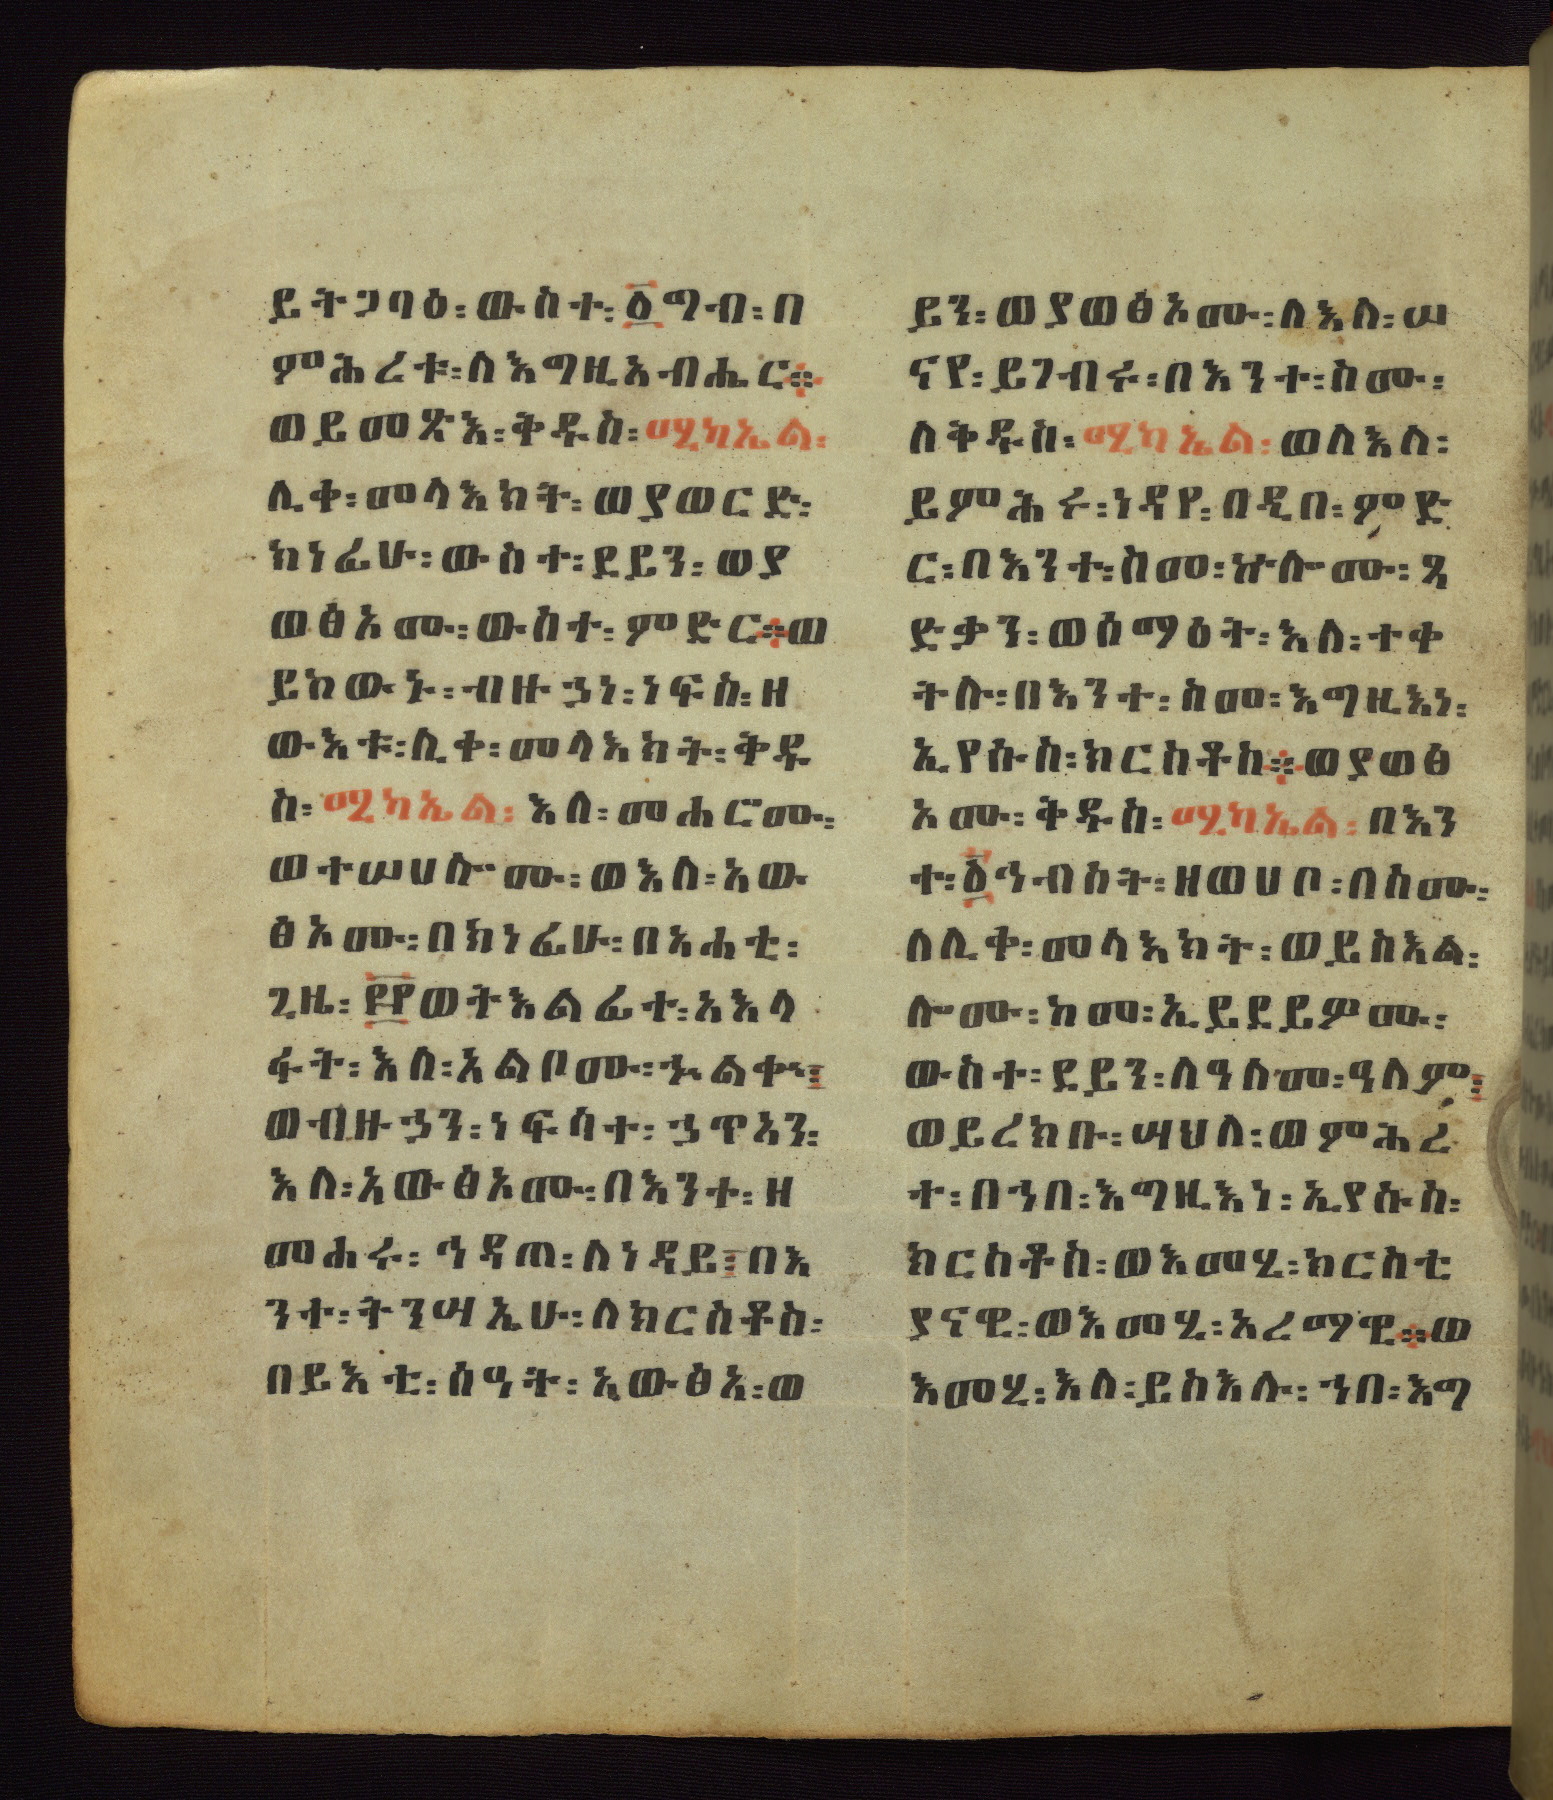 ይትጋባዕ፡ውስተ፡፩ማብ፡በ
ምሕረቱ፡ለእግዚአብሔር።
ወይመጽእ፡ቅዱስ፡ሚካኤል፡
ሊቀ፡መላእክት፡ወያወርድ፡
ክነፊሁ፡ውስተ፡ደይን፡ወያ
ወፅአሙ፡ውስተ፡ምድር።ወ
ይከውኑ፡ብዙኃነ፡ነፍስ፡ዘ
ውእቱ፡ሊቀ፡መላእክት፡ቅዱ
ስ፡ሚካኤል፡እለ፡መሐርሙ፡
ወተሠሀሎሙ፡ወእለ፡አው
ፅአሙ፡በክነፊሁ፡በአሐቲ፡
ጊዜ፡፼፼ወትእልፊተ፡አእላ
ፋት፡እለ፡አልቦሙ፡ኊልቀ፡
ወብዙኃን፡ነፍሳተ፡ኃጥአን፡
እለ፡አውፅአሙ፡በእንተ፡ዘ
መሐሩ፡ኅዳጠ፡ለነዳይ፡በእ
ንተ፡ትንሣኤሁ፡ለክርስቶስ፡
በይእቲ፡ሰዓት፡ኢውፅአ፡ወ
ይን፡ወያወፅኦሙ፡ለእለ፡ሠ
ናየ፡ይገብሩ፡በእንተ፡ስሙ፡
ለቅዱስ፡ሚካኤል፡ወለእለ፡
ይምሕሩ፡ነዳየ፡በዲበ፡ምድ
ር፡በእንተ፡ስመ፡ኵሎሙ፡ጻ
ድቃን፡ወሰማዕት፡እለ፡ተቀ
ትሉ፡በእንተ፡ስመ፡እግዚእነ፡
ኢየሱስ፡ክርስቶስ።ወያወፅ
አሙ፡ቅዱስ፡ሚካኤል፡በእን
ተ፡፩ኅብስት፡ዘወሀቦ፡በስሙ፡
ለሊቀ፡መላእክት፡ወይስእል፡
ሎሙ፡ከመ፡ኢይደይምሙ፡
ውስተ፡ደይን፡ለዓለመ፡ዓለም፡
ወይረክቡ፡ሣህለ፡ወምሕረ
ተ፡በኀበ፡እግዚእነ፡ኢየሱስ፡
ክርስቶስ፡ወእመሂ፡ክርስቲ
ያናዊ፡ወእመሂ፡አረማዊ።ወ
እመሂ፡እለ፡ይስእሉ፡ኀበ፡እግ